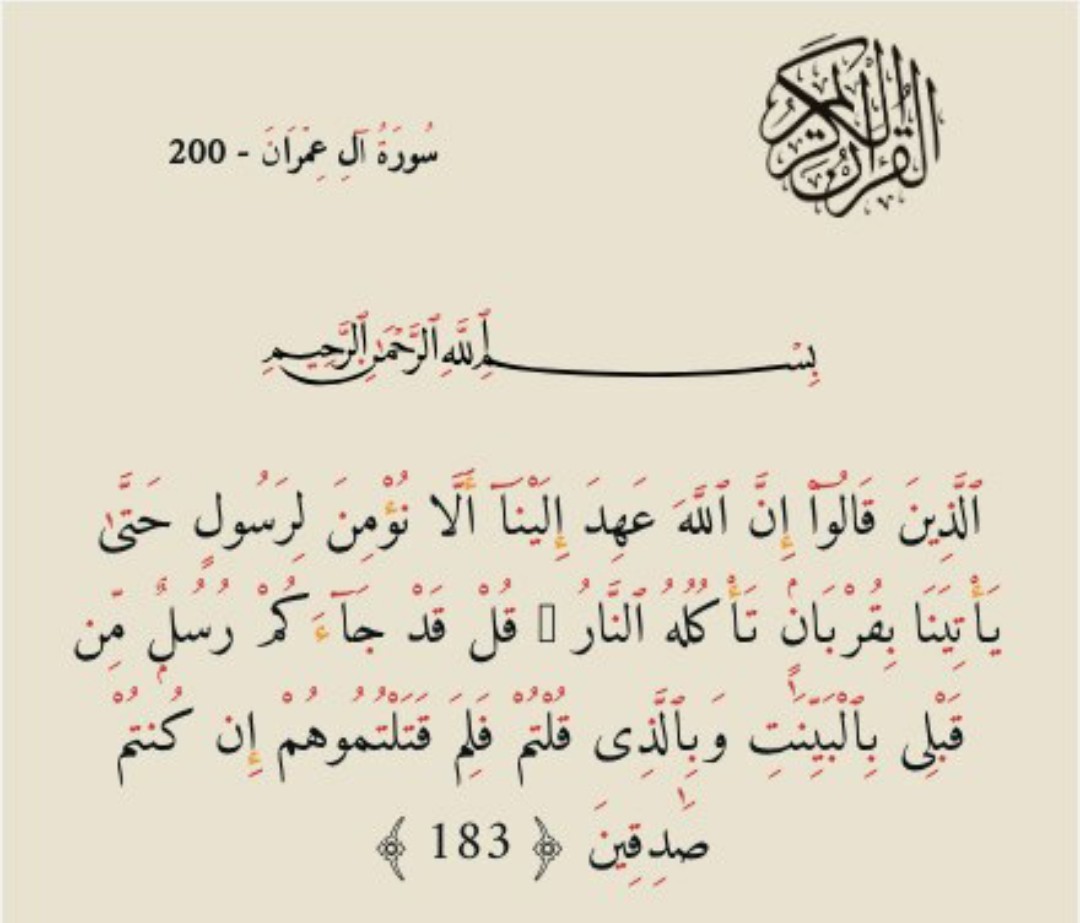 القرآن الكريم
سُورَةُ آلِ عِمْرَانَ - 200
بِسْمِ ٱللَّهِ ٱلرَّحْمَٰنِ ٱلرَّحِيمِ
ٱلَّذِينَ قَالُوٓا۟ إِنَّ ٱللَّهَ عَهِدَ إِلَيْنَآ أَلَّا نُؤْمِنَ لِرَسُولٍ حَتَّىٰ
يَأْتِيَنَا بِقُرْبَانٍۢ تَأْكُلُهُ ٱلنَّارُ ▯ قُلْ قَدْ جَآءَكُمْ رُسُلٌۭ مِّن
قَبْلِى بِٱلْبَيِّنَٰتِ وَبِٱلَّذِى قُلْتُمْ فَلِمَ قَتَلْتُمُوهُمْ إِن كُنتُمْ
صَٰدِقِينَ ﴿ 183 ﴾